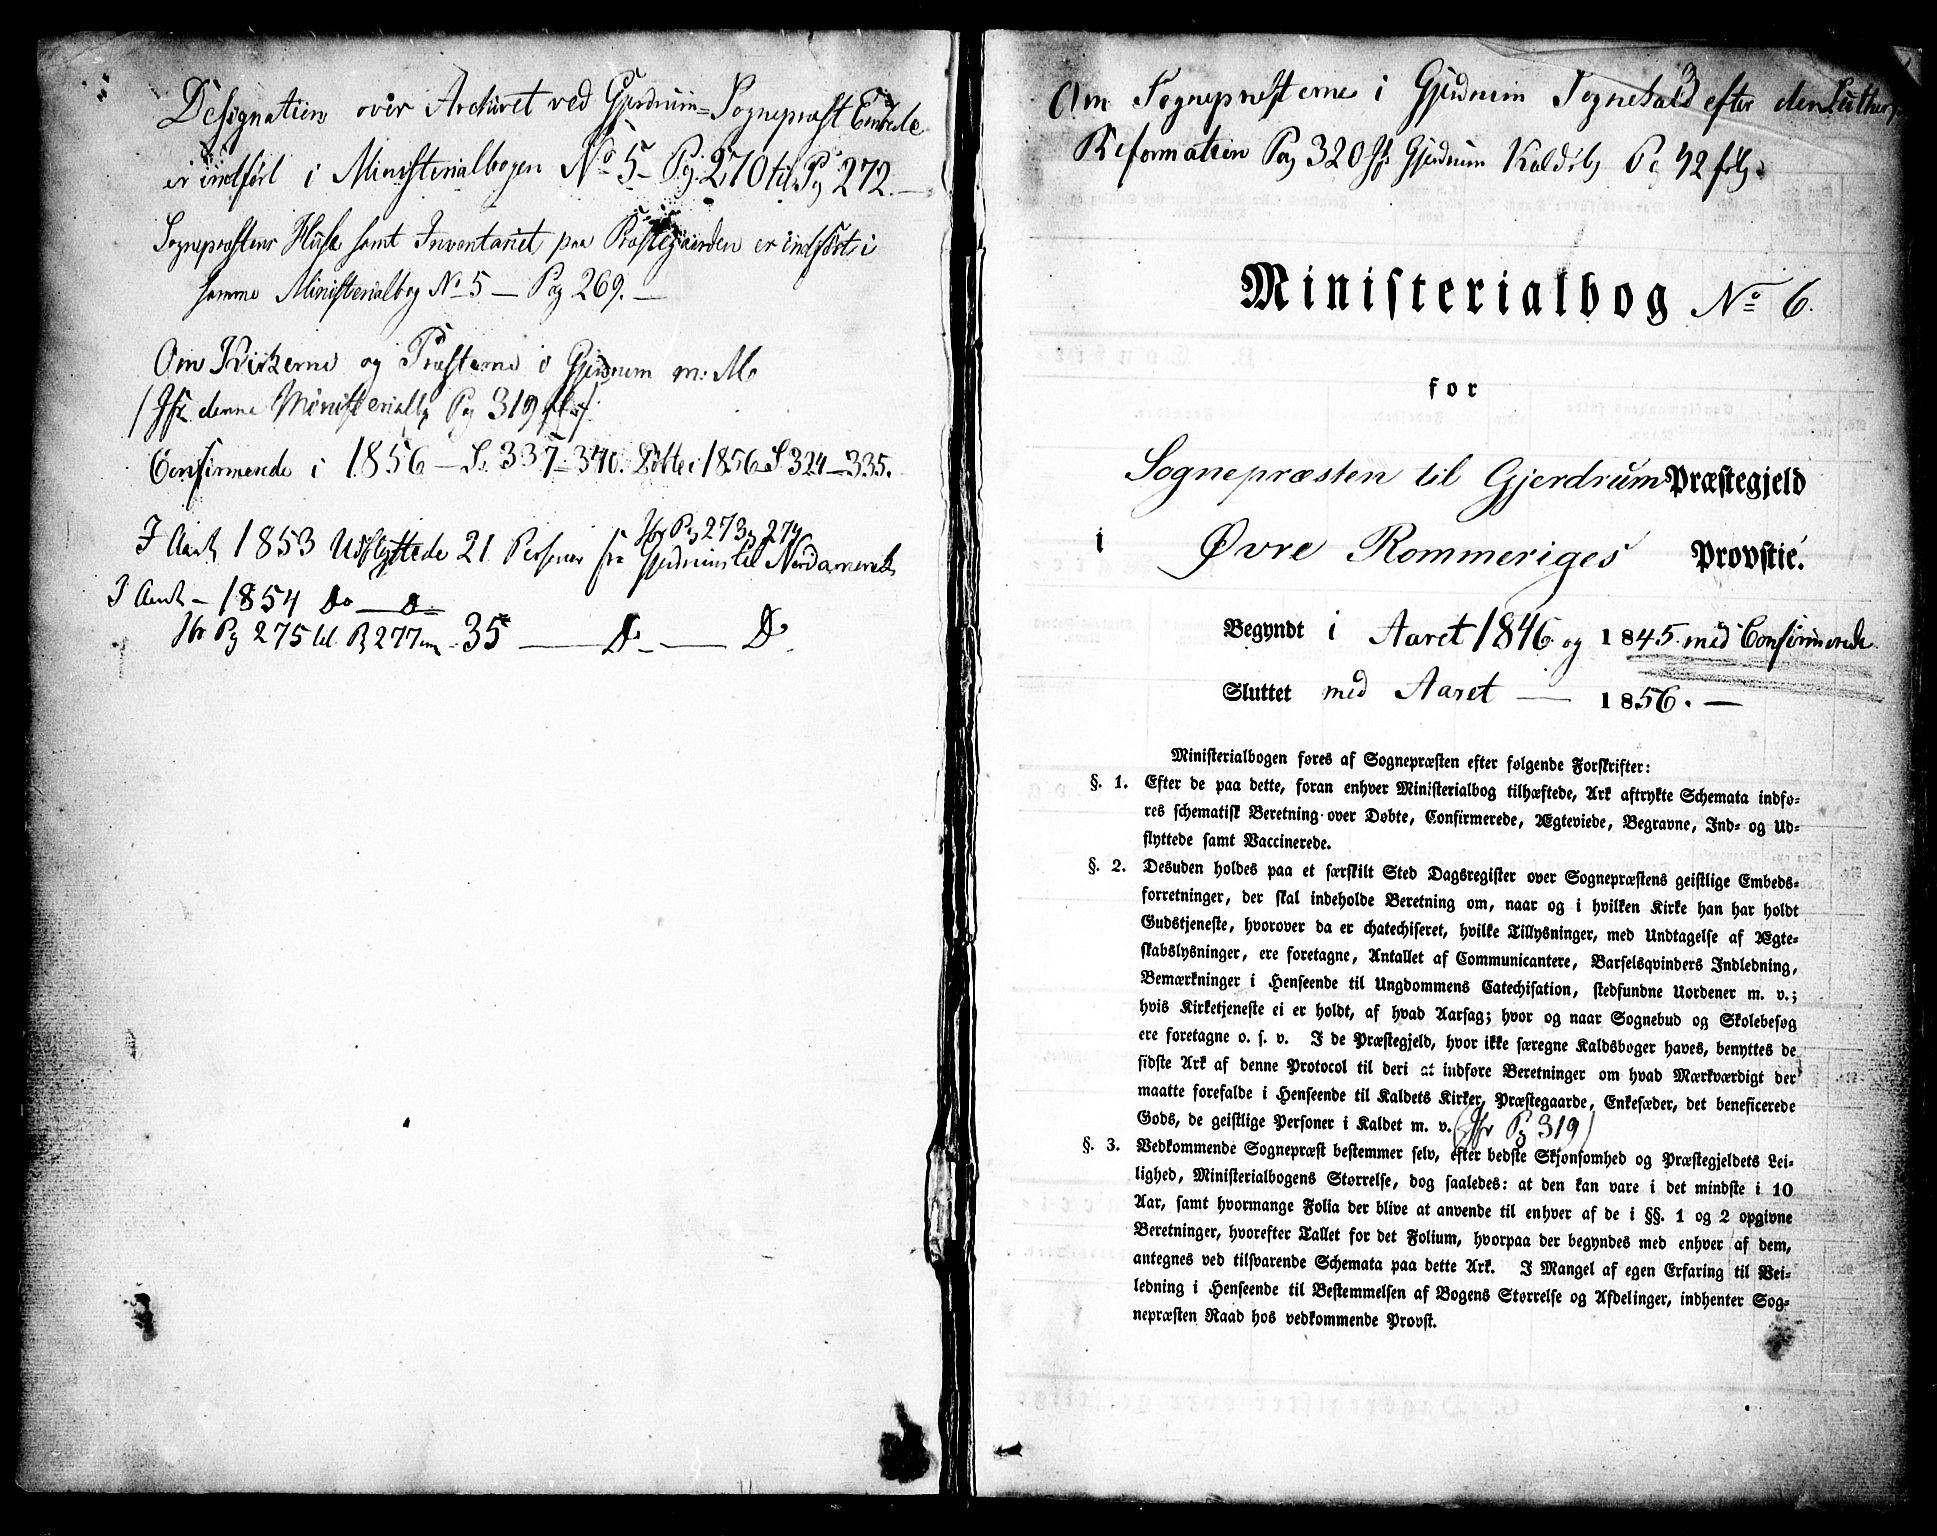 Designation over Archivet ved Gjerdrum=Sognepræst Embede
er indført i Ministerialbogen No 5 - Pg 270 til Pg 272. -
Sognepræstens Huse samt Inventariet paa Præstegaarden er indført i
samme Ministerialbog No 5 — Pag 269. —
Om Kirkerne og Præsterne i Gjerdrum m: M
/ Jfr denne Ministerialbg Pag 319 /
Confirmerede i 1856 - S. 337-340. Døbte i 1856 S 324-335.
Jfr Pg 273 og 274
I Aaret 1853 Udflyttede 21 Personer fra Gjerdrum til Nordamerika
I Aaret - 1854 Do — Do
Jfr Pg 275 til Pg 277 - 35 — Do — Do.
Om Sognepræsterne i Gjerdrum Sognekald efter den Luther
Reformation Pag 320 Jfr Gjerdrum Kaldsbg Pg 42 følg.
Ministerialbog No 6.
for
Sognepræsten til Gjerdrum Præstegjeld
i Øvre Rommeriges Provstie.
Begyndt i Aaret 1846 og 1845. med Confirmerede
Sluttet med Aaret — 1856. —
Ministerialbogen føres af Sognepræsten efter følgende Forskrifter:
§. 1. Efter de paa dette, foran enhver Ministerialbog tilhæftede, Ark aftrykte Schemata indfø-
res schematisk Beretning over Døbte, Confirmerede, Ægteviede, Begravne, Ind- og Ud-
flyttede samt Vaccinerede.
§. 2. Desuden holdes paa et særskilt Sted Dagsregister over Sognepræstens geistlige Embeds-
forretninger, der skal indeholde Beretning om, naar og i hvilken Kirke han har holdt
Gudstjeneste, hvorover da er chatechiseret, hvilke Tillysninger, med Undtagelse af Ægte-
skabslysninger, ere foretagne, Antallet af Communicantere, Barselqvinders Indledning,
Bemærkninger i Henseende til Ungdommens Catechisation, stedfundne Uordener m. v.;
hvis Kirketjeneste ei er holdt, af hvad Aarsag; hvor og naar Sognebud og Skolebesøg
ere foretagne o. s. v. I de Præstegjeld, hvor ikke særegne Kaldsbøger haves, benyttes de
sidste Ark af denne Protocol til deri at indføre Beretninger om hvad Mærkværdigt der
maatte forefalde i Henseende til Kaldets Kirker, Præstegaarde, Enkesæder, det beneficerede
Gods, de geistlige Personer i Kaldet m. v. (Jfr Pg 319)
§. 3. Vedkommende Sognepræst bestemmer selv, efter bedste Skjønsomhed og Præstegjeldets Lei-
lighed, Ministerialbogens Størrelse, dog saaledes: at den kan vare i det mindste i 10
Aar, samt hvormange Folia der blive at anvende til enhver af de i §§. 1 og 2 opgivne
Beretninger, hvorefter Tallet for det Folium, hvorpaa der begyndes med enhver af dem,
antegnes ved tilsvarende Schemata paa dette Ark. I Mangel af egen Erfaring til Vei-
ledning i Henseende til Bestemmelsen af Bogens Størrelse og Afdelinger, indhenter Sog-
nepræsten Raad hos vedkommende Provst.